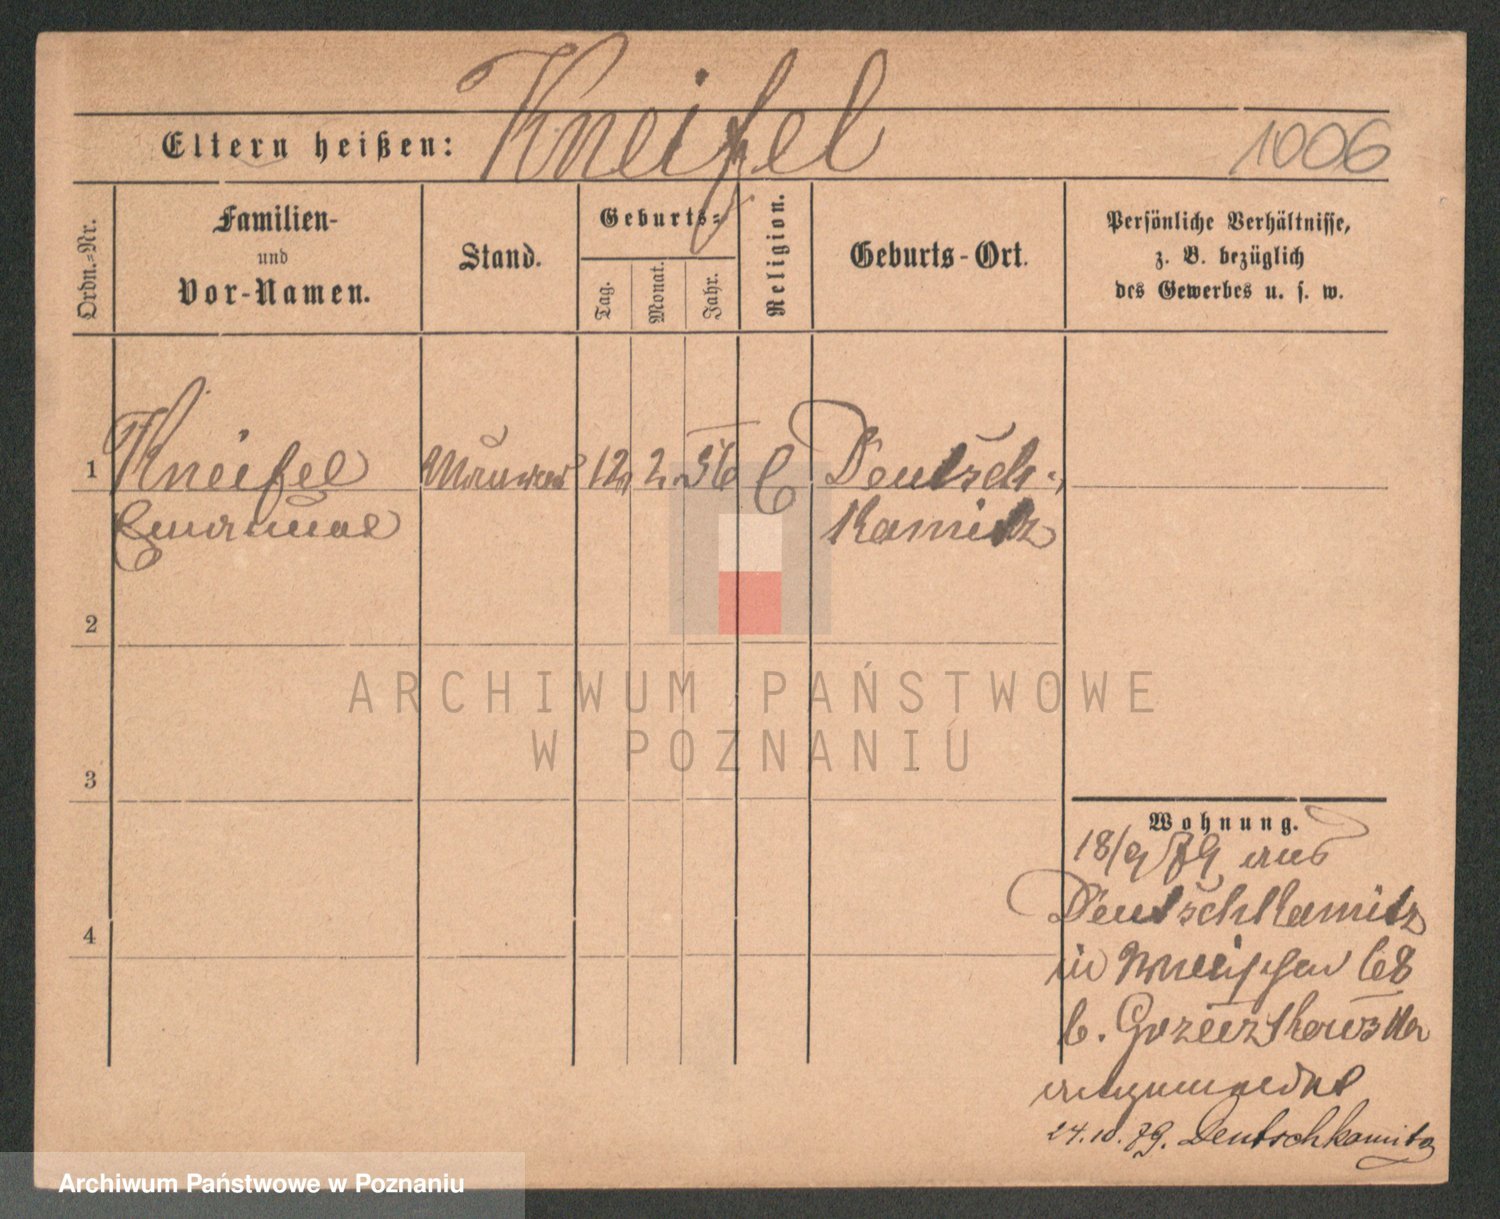 Kneifel
Eltern heißen:
1006
Ordn.-Nr.
Familien-
und
Vor-Namen.
Stand.
Geburts-
Tag.
Monat.
Jahr.
Religion.
Geburts-Ort.
Persönliche Verhältnisse,
z. B. bezüglich
des Gewerbes u. s. w.
1
Kneifel
Emanuel
Maurer
12.
2.
56
C
Deutsch-
Kamitz
2
3
4
Wohnung.
18/9 79 aus
Deutschkamitz
in 68
b.
angemeldet
24.10.79. Deutschkamitz
ARCHIWUM PAŃSTWOWE
W POZNANIU
Archiwum Państwowe w Poznaniu